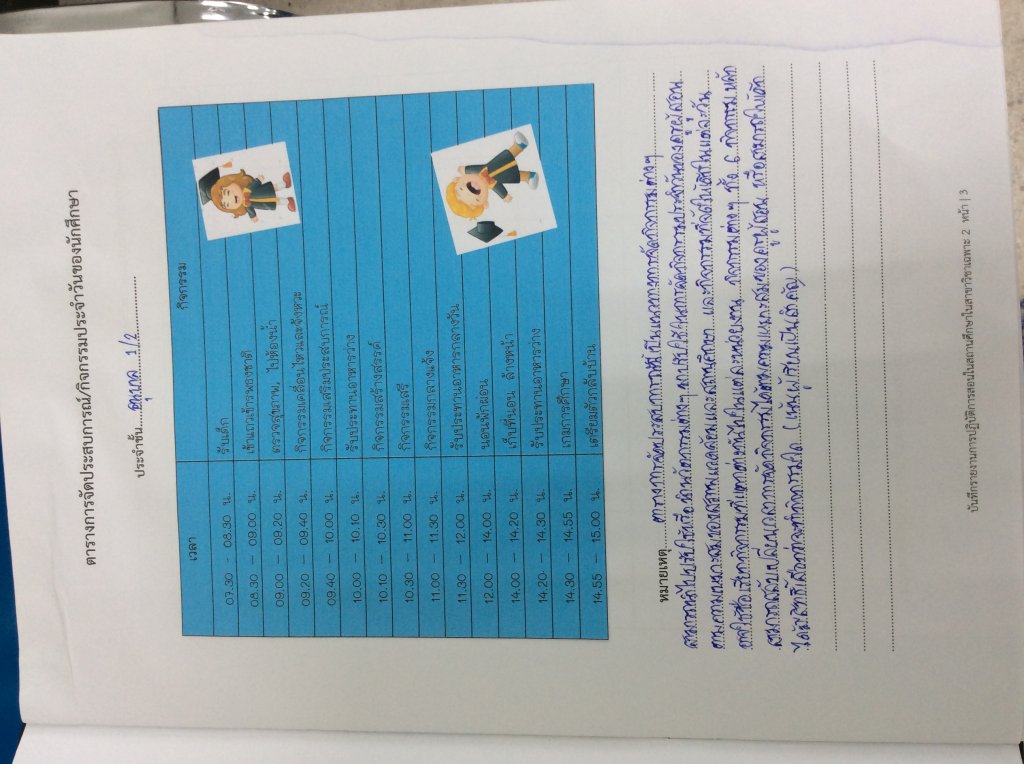 ตารางการจัดประสบการณ์/กิจกรรมประจำวันของนักศึกษา
ประจำชั้น อนุบาล 1/2
เวลา กิจกรรม
07.30 - 08.30 น. รับเด็ก
08.30 - 09.00 น. เข้าแถวเคารพธงชาติ
09.00 - 09.20 น. ตรวจสุขภาพ, ไปห้องน้ำ
09.20 - 09.40 น. กิจกรรมเคลื่อนไหวและจังหวะ
09.40 - 10.00 น. กิจกรรมเสริมประสบการณ์
10.00 - 10.10 น. รับประทานอาหารว่าง
10.10 - 10.30 น. กิจกรรมสร้างสรรค์
10.30 - 11.00 น. กิจกรรมเสรี
11.00 - 11.30 น. กิจกรรมกลางแจ้ง
11.30 - 12.00 น. รับประทานอาหารกลางวัน
12.00 - 14.00 น. นอนพักผ่อน
14.00 - 14.20 น. เก็บที่นอน ล้างหน้า
14.20 - 14.30 น. รับประทานอาหารว่าง
14.30 - 14.55 น. เกมการศึกษา
14.55 - 15.00 น. เตรียมตัวกลับบ้าน
หมายเหตุ ตารางการจัดประสบการณ์นี้เป็นแนวทางการจัดกิจกรรมต่างๆ
สามารถนำไปปรับใช้ ในการจัดกิจกรรมประจำวันของครูผู้สอน
ตามความเหมาะสมของสภาพแวดล้อมและสถานศึกษา และกิจกรรมที่จัดในแต่ละวัน
อาจใช้ชื่อเรียกกิจกรรมที่แตกต่างกันไปในแต่ละหน่วยงาน กิจกรรมต่างๆ ทั้ง 6 กิจกรรม หลัก
สามารถสลับเปลี่ยนเวลาการจัดกิจกรรมได้ตามความเหมาะสมของครูผู้สอน หรือสามารถให้เด็ก
ได้มีสิทธิ์เลือกว่าจะทำกิจกรรมใด (เน้นผู้เรียนเป็นสำคัญ)
บันทึกรายงานการปฏิบัติการสอนในสถานศึกษาในสาขาวิชาเฉพาะ 2 หน้า | 3